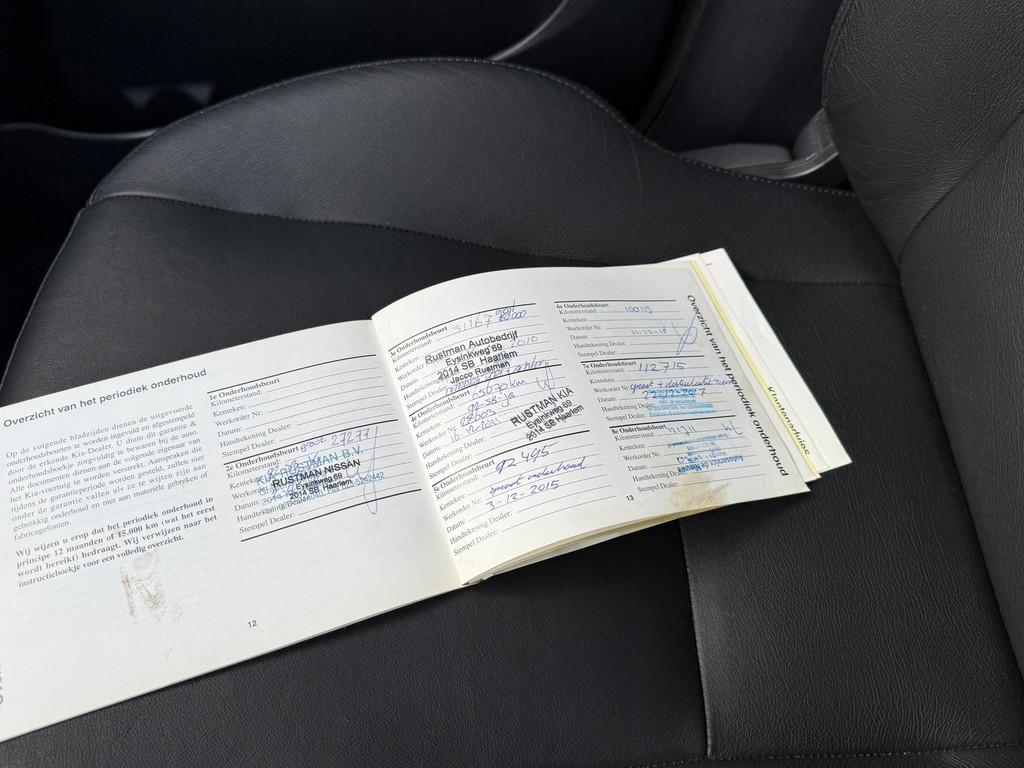 Overzicht van het periodiek onderhoud
Op de volgende bladzijden dienen de uitgevoerde
onderhoudsbeurten te worden ingevuld en afgestempeld
door de erkende Kia-Dealer. U dient dit garantie &
onderhoudsboekje zorgvuldig te bewaren bij de auto.
Alle documenten dienen aan de volgende eigenaar van
het Kia-voertuig te worden verstrekt. Aanspraken die
tijdens de garantieperiode worden gesteld, zullen niet
onder de garantie vallen als ze te wijten zijn aan
gebrekkig onderhoud en niet aan materiële gebreken of
fabricagefouten.
Wij wijzen u erop dat het periodiek onderhoud in
principe 12 maanden of 15.000 km (wat het eerst
wordt bereikt) bedraagt. Wij verwijzen naar het
instructieboekje voor een volledig overzicht.
1e Onderhoudsbeurt
Kilometerstand:
Kenteken:
Werkorder Nr:
Datum:
Handtekening Dealer:
Stempel Dealer:
2e Onderhoudsbeurt groot 27277
Kilometerstand:
Kenteken:
RUSTMAN B.V.
Werkorder
RUSTMAN NISSAN
Eysinkweg 69
Datum:
2014 SB Haarlem
Handtekening Dealer:
Stempel Dealer:
12
3e Onderhoudsbeurt
Kilometerstand: 31167
Kenteken:
Rustman Autobedrijf
Werkorder
Eysinkweg 69
2010
Datum:
2014 SB Haarlem
Handtekening
Jacco Rustman
4e Onderhoudsbeurt
Kilometerstand: 65670 km
Kenteken:
Werkorder Nr:
Datum:
RUSTMAN KIA
Eysinkweg 69
2014 SB Haarlem
Handtekening Dealer:
Stempel Dealer:
5e Onderhoudsbeurt
Kilometerstand: 92495
Kenteken:
Werkorder Nr: groot onderhoud
Datum: 3-12-2015
Handtekening Dealer:
Stempel Dealer:
6e Onderhoudsbeurt
Kilometerstand: 100115
Kenteken:
Werkorder Nr:
Datum: 11-12-16
Handtekening Dealer:
Stempel Dealer:
7e Onderhoudsbeurt
Kilometerstand: 112715
Kenteken:
Werkorder Nr: groot + distributie riem
Datum:
Handtekening Dealer:
Stempel Dealer:
8e Onderhoudsbeurt
Kilometerstand:
Kenteken:
Werkorder Nr:
Datum:
Handtekening Dealer:
Stempel Dealer:
13
Overzicht van het periodiek onderhoud